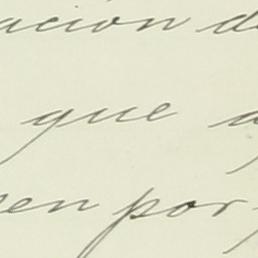 ación d
que a
en por